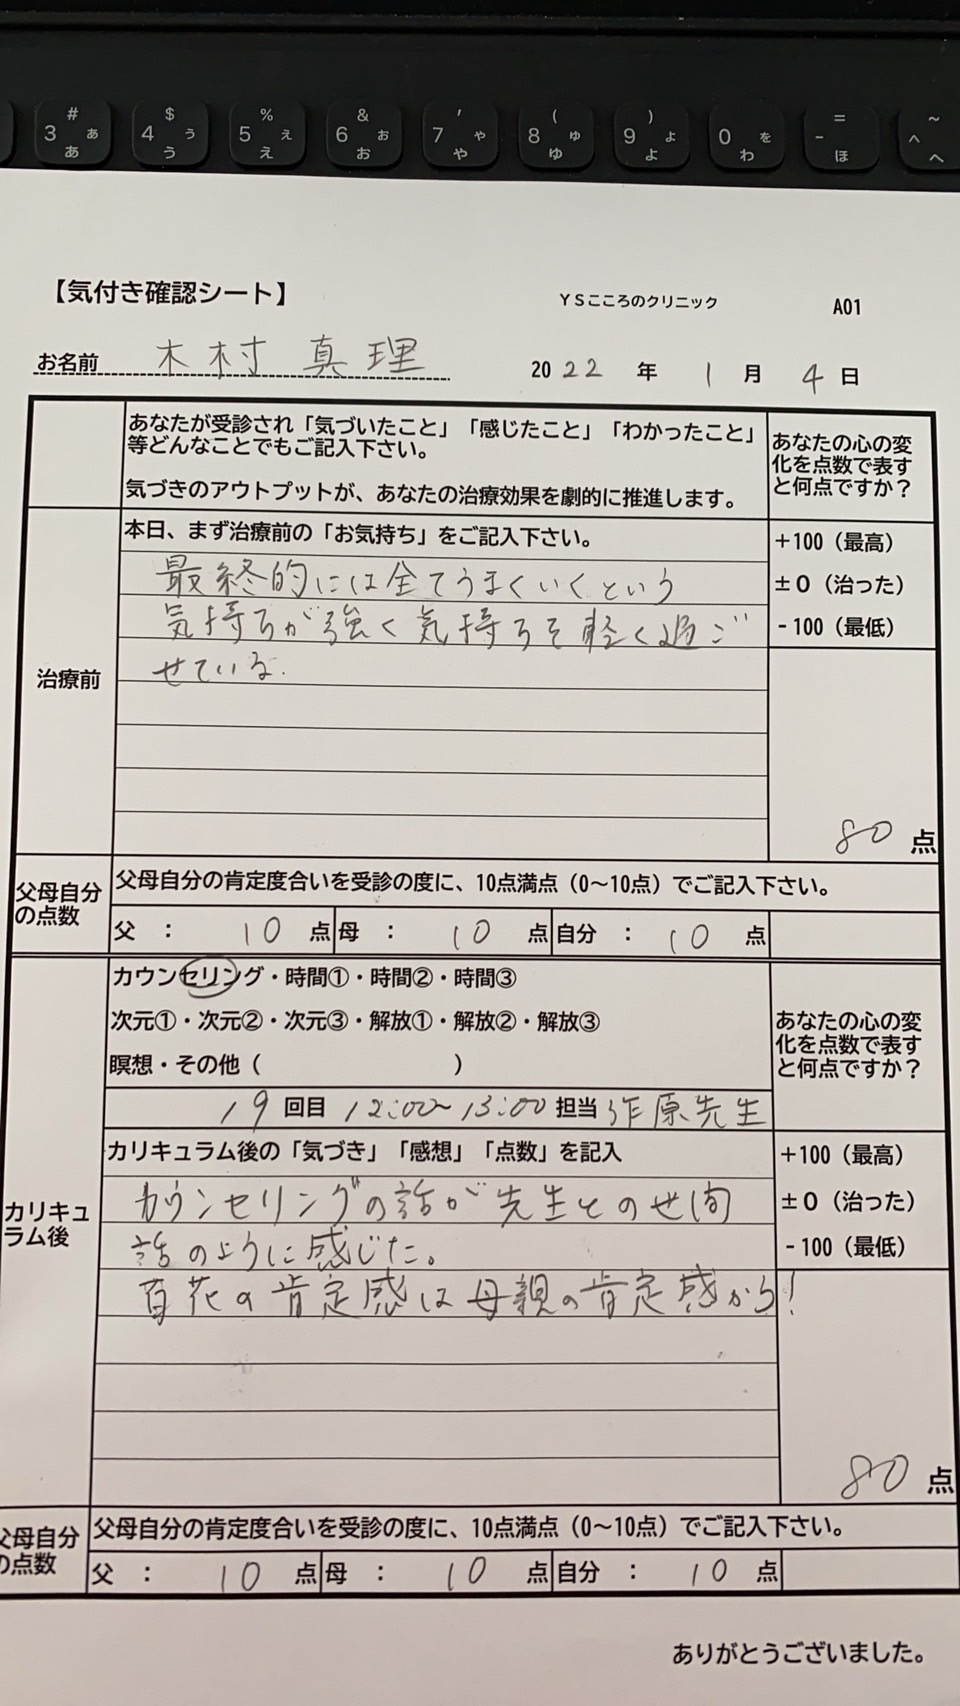 # 3 あ あ
$ 4 ぅ う
% 5 ぇ え
& 6 ぉ お
' 7 ゃ や
( 8 ゅ ゆ
) 9 ょ よ
0 を わ
= - ほ
~ ^ へ
【気付き確認シート】 YSこころのクリニック A01
お名前 木村 真理 2022年 1月 4日
あなたが受診され「気づいたこと」「感じたこと」「わかったこと」
等どんなことでもご記入下さい。
気づきのアウトプットが、あなたの治療効果を劇的に推進します。
あなたの心の変
化を点数で表す
と何点ですか?
治療前
本日、まず治療前の「お気持ち」をご記入下さい。
最終的には全てうまくいくという
気持ちが強く気持ちを軽く過ご
せている.
+100(最高)
±0(治った)
-100(最低)
80点
父母自分
の点数
父母自分の肯定度合いを受診の度に、10点満点(0〜10点)でご記入下さい。
父 : 10 点 母 : 10 点 自分 : 10 点
カウンセリング・時間①・時間②・時間③
次元①・次元②・次元③・解放①・解放②・解放③
瞑想・その他( )
19 回目 12:00~13:00 担当 原先生
あなたの心の変
化を点数で表す
と何点ですか?
カリキュ
ラム後
カリキュラム後の「気づき」「感想」「点数」を記入
カウンセリングの話が先生とのせ間
話のように感じた。
百花の肯定感は母親の肯定感から!
+100(最高)
±0(治った)
-100(最低)
80点
父母自分
の点数
父母自分の肯定度合いを受診の度に、10点満点(0〜10点)でご記入下さい。
父 : 10 点 母 : 10 点 自分 : 10 点
ありがとうございました。